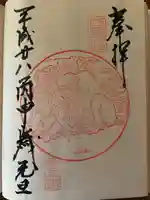 奉拝
平成廿八丙申歳元旦